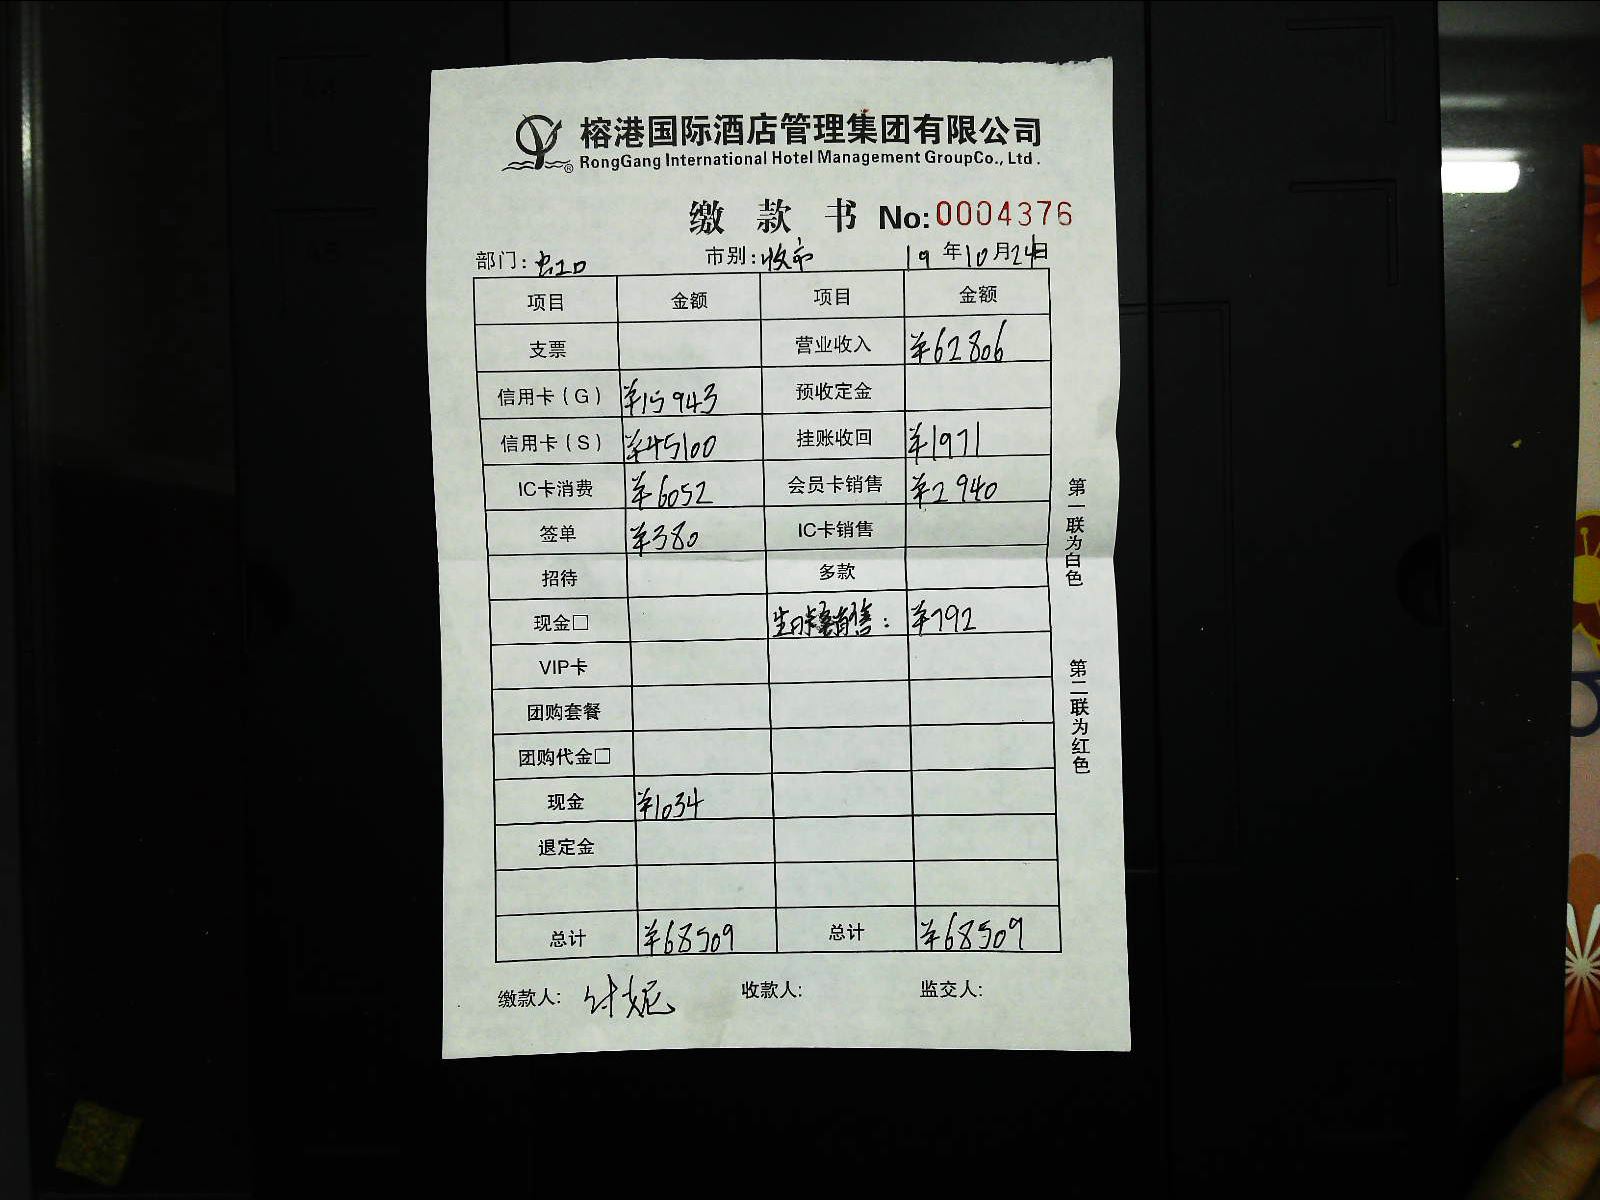 榕港国际酒店管理集团有限公司
RongGang International Hotel Management GroupCo., Ltd.
缴款书 No:0004376
部门:虹口 市别:收市 19年10月24日
项目 金额 项目 金额
支票 营业收入 ¥62806
信用卡(G) ¥15943 预收定金
信用卡(S) ¥45100 挂账收回 ¥1971
IC卡消费 ¥6052 会员卡销售 ¥2940
签单 ¥380 IC卡销售
招待 多款
现金□ 销售: ¥792
VIP卡
团购套餐
团购代金□
现金 ¥1034
退定金
总计 ¥68509 总计 ¥68509
缴款人: 收款人: 监交人:
第一联为白色
第二联为红色